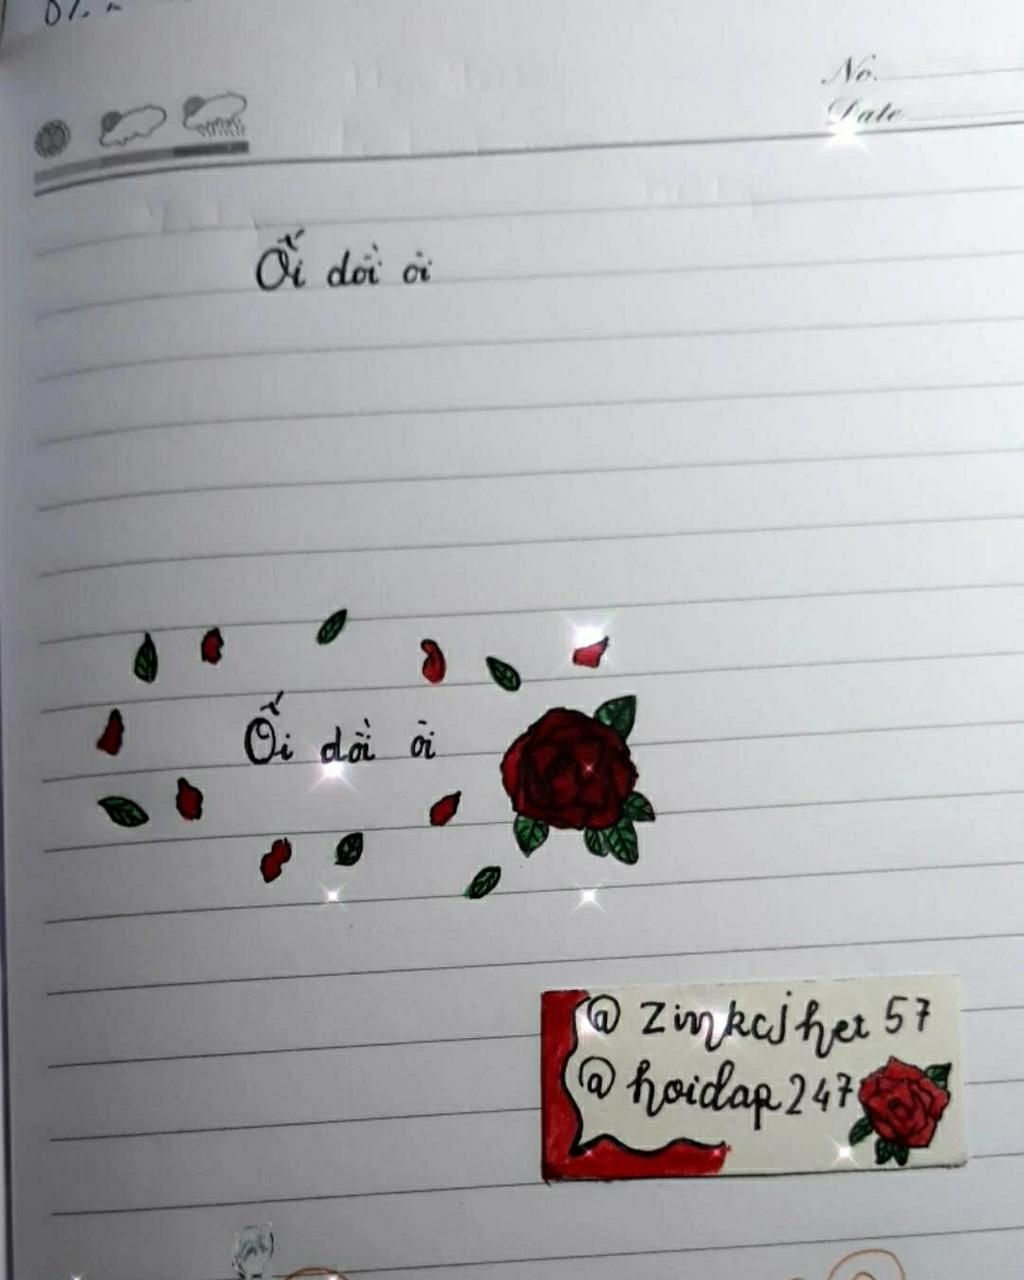 No.
Date
Ối dồi ôi
Ối dồi ôi
@ zinkcjhet 57
@ hoidap247